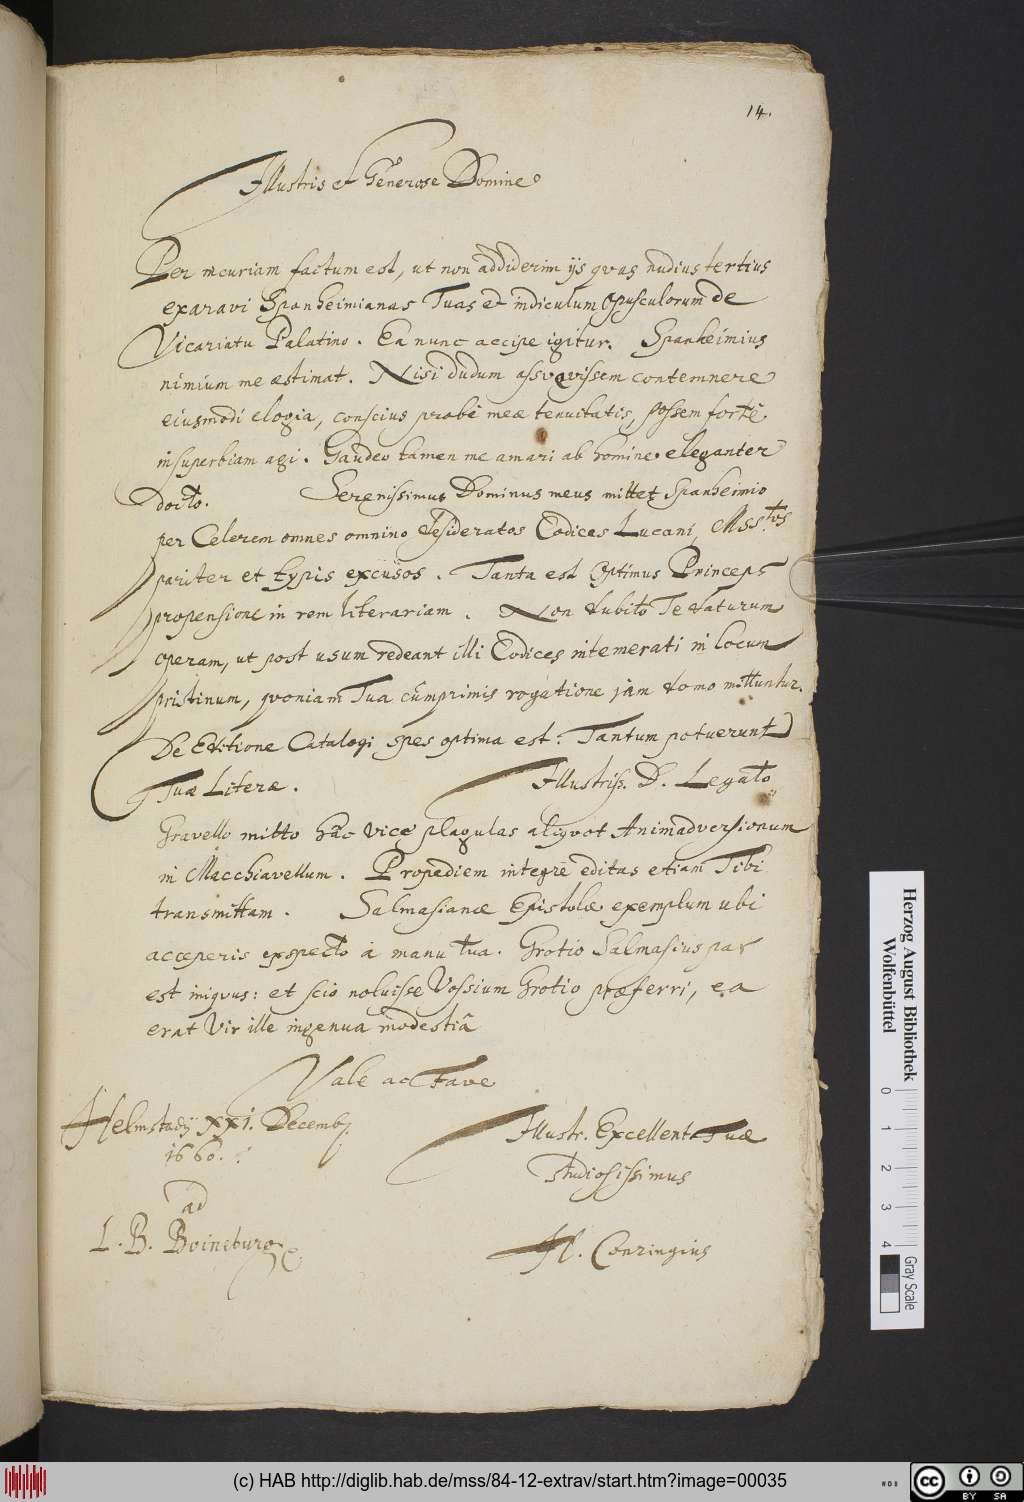 14.
Illustris et Generose Domine
Per incuriam factum est, ut non addiderim ijs qvas nudius tertius
exaravi Spanheimianas Tuas et indiculum Opusculorum de
Vicariatu Palatino. Ea nunc accipe igitur. Spanheimius
nimium me æstimat. Nisi dudum assvevissem contemnere
eiusmodi elogia, conscius probè meæ tenuitatis, possem fortè
in superbiam agi. Gaudeo tamen me amari ab homine eleganter
docto. Serenissimus Dominus meus mittet Spanheimio
per Celerem omnes omnino desideratos Codices Lucani, Mss.tos
pariter et typis excusos. Tanta est Optimus Princeps
propensione in rem literariam. Non dubito Te daturum
operam, ut post usum redeant illi Codices intemerati in locum
pristinum, qvoniam Tua cumprimis rogatione jam domo mittuntur.
De Editione Catalogi spes optima est: Tantum potuerunt
Tuæ Literæ. Illustriss. D. Legato
Gravello mitto hac vice plagulas aliqvot Animadversionum
in Macchiavellum. Propediem integrè editas etiam Tibi
transmittam. Salmasianæ Epistolæ exemplum ubi
acceperis exspecto à manu tua. Grotio Salmasius par
est iniqvus: et scio noluisse Vossium Grotio præferri, ea
erat Vir ille ingenua modestiâ
Vale ac Fave
Helmstadij XXI. Decemb.
1660.
Illustr. Excellent. Tuæ
Studiosissimus
ad
L. B. Boineburg.
H. Conringius
Herzog August Bibliothek
Wolfenbüttel
0 1 2 3 4
Gray Scale
(c) HAB http://diglib.hab.de/mss/84-12-extrav/start.htm?image=00035
cc BY SA